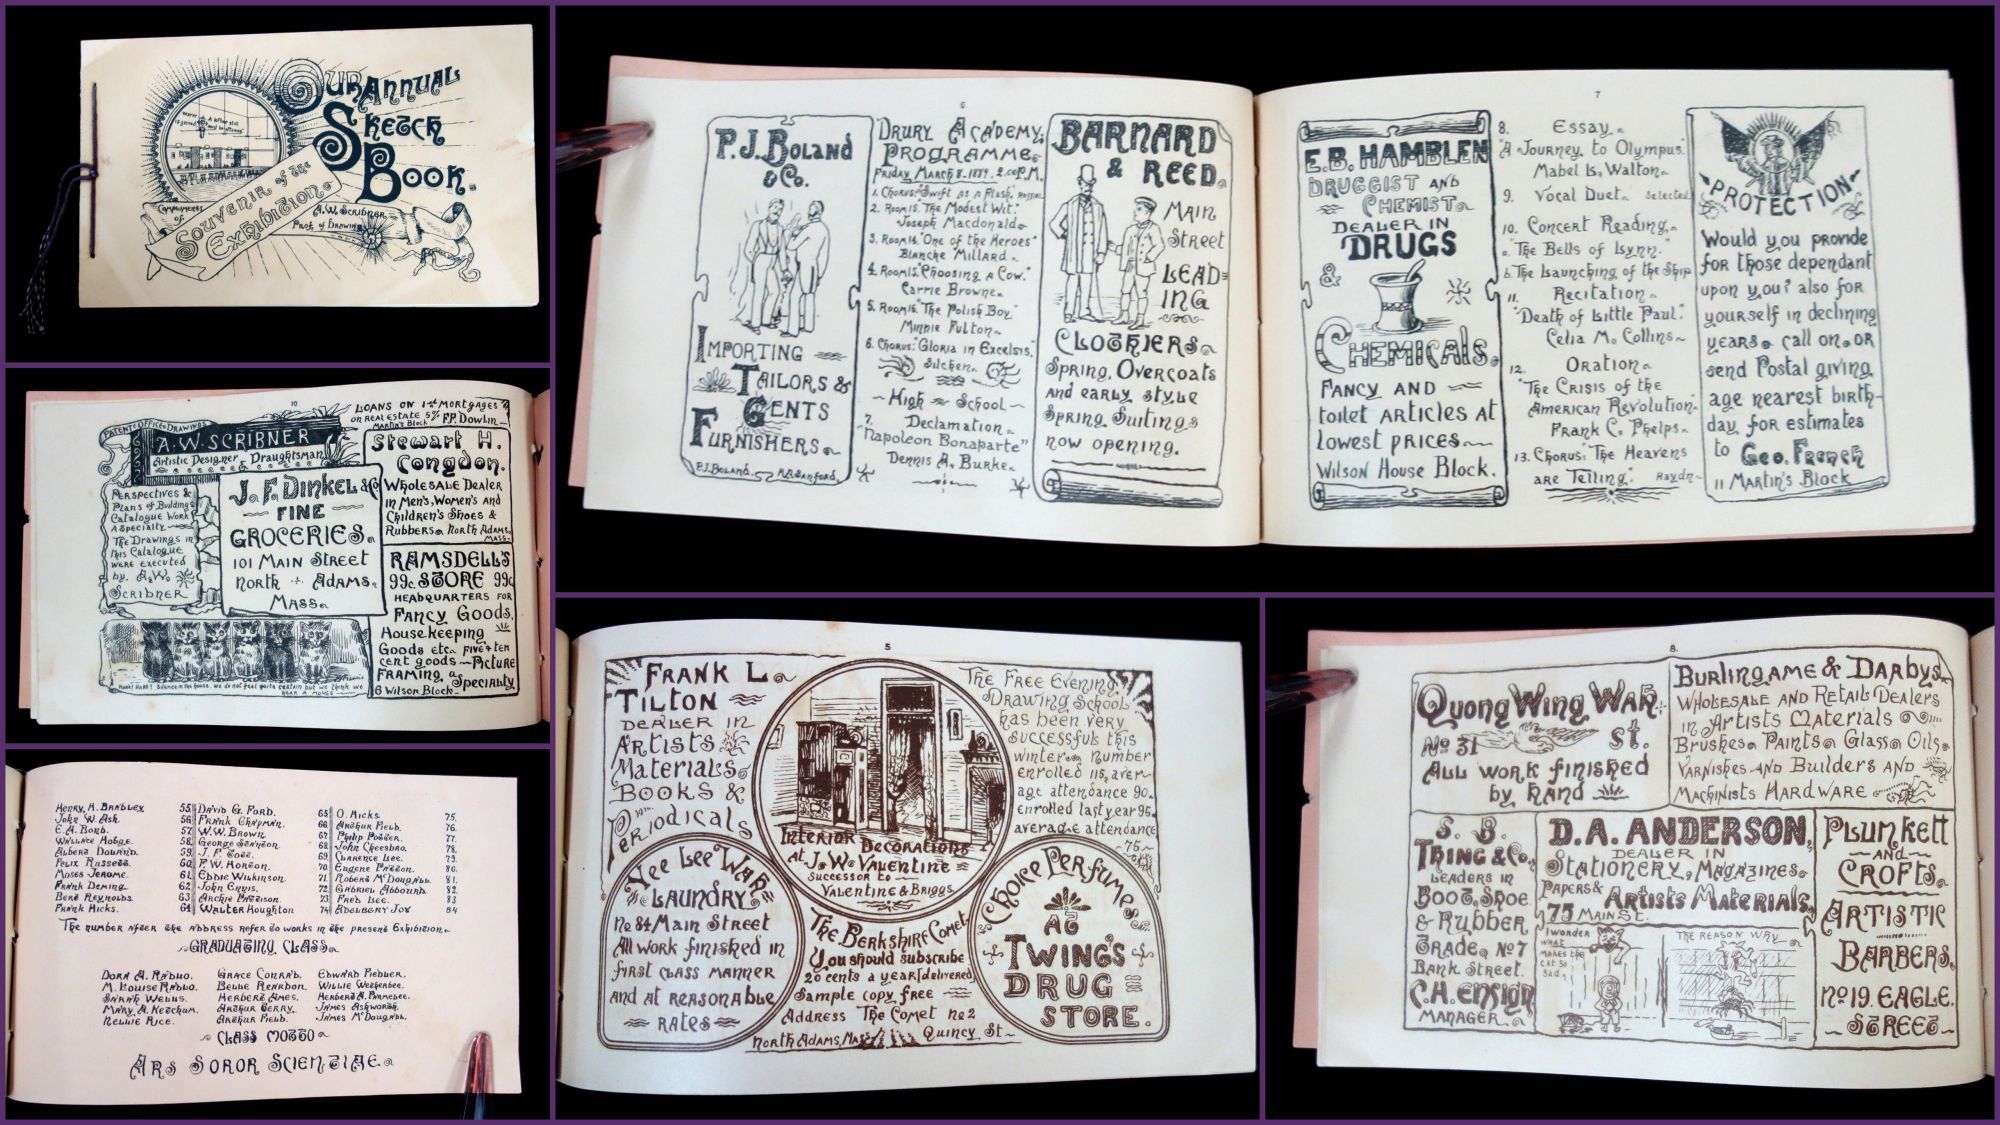 Our Annual
Sketch
Book.
Souvenir of the
Exhibition.
Compliments
of
A. W. Scribner
Prof. of Drawing
6
P. J. Boland
& Co.
Importing
Tailors &
Gents
Furnishers.
P. J. Boland.
Drury Academy.
Programme.
Friday, March 8. 1889. 2.00 P.M.
1. Chorus: "Swift as a Flash,
2. Room 15. "The Modest Wit."
Joseph Macdonald.
3. Room 14. "One of the Heroes"
Blanche Millard.
4. Room 13. "Choosing a Cow."
Carrie Browne.
5. Room 16. "The Polish Boy"
Minnie Fulton.
6. Chorus: "Gloria in Excelsis."
High School
7. Declamation.
"Napoleon Bonaparte"
Dennis A. Burke.
Barnard
& Reed.
Main
Street
Lead=
ing
Clothiers.
Spring, Overcoats
and early style
Spring Suitings
now opening.
7
E. B. Hamblen
Druggist and
Chemist.
Dealer in
Drugs
&
Chemicals.
Fancy and
toilet articles at
lowest prices.
Wilson House Block.
8. Essay.
"A Journey to Olympus."
Mabel L. Walton.
9. Vocal Duet. Selected
10. Concert Reading.
a. "The Bells of Lynn."
b. The Launching of the Ship
11. Recitation.
"Death of Little Paul."
Celia M. Collins.
12. Oration.
"The Crisis of the
American Revolution"
Frank C. Phelps.
13. Chorus: "The Heavens
are Telling." Haydn
Protection
Would you provide
for those dependant
upon you? also for
yourself in declining
years. call on. or
send Postal giving
age nearest birth-
day, for estimates
to Geo. French
11 Martin's Block
10
Patent Office Drawings
A. W. Scribner
Artistic Designer & Draughtsman
Perspectives &
Plans of Buildings
Catalogue Work
a Specialty
The Drawings in
this Catalogue
were executed
by A. W.
Scribner
J. F. Dinkel & Co
Fine
Groceries.
101 Main Street
North Adams.
Mass.
Hark! Hark! Silence in the house. We do not feel quite certain but we think we
hear a mouse
Loans on 1st Mortgages
on Real Estate 5%
Martin's Block F. P. Dowlin
Stewart H.
Congdon.
Wholesale Dealer
in Men's, Women's and
Children's Shoes &
Rubbers. North Adams.
Mass.
Ramsdell's
99c. Store 99c.
Headquarters for
Fancy Goods,
Housekeeping
Goods etc. five & ten
cent goods—Picture
Framing, a Specialty
6 Wilson Block.
5
Frank L.
Tilton
Dealer in
Artists
Materials.
Books &
Periodicals
Interior Decorations
at J. W. Valentine
successor to
Valentine & Briggs
The Free Evening
Drawing School
has been very
successful this
winter. number
enrolled 115, aver-
age attendance 90.
enrolled last year 95.
average attendance
75
Yee Lee Wah
Laundry
No 84 Main Street
All work finished in
first class manner
and at reasonable
rates
The Berkshire Comet.
You should subscribe
20 cents a year delivered
Sample copy free
Address "The Comet No 2
North Adams, Mass. Quincy St.
Choice Perfumes
at
Twing's
Drug
Store.
8.
Quong Wing Wah
No 31 St.
All work finished
by hand
Burlingame & Darbys
Wholesale and Retail Dealers
in Artists Materials
Brushes. Paints. Glass. Oils.
Varnishes and Builders and
Machinists Hardware
S. B.
Thing & Co.
Leaders in
Boot, Shoe
& Rubber
Trade, No 7
Bank Street.
C. H. Ensign
Manager.
D. A. Anderson,
Dealer in
Stationery, Magazines.
Papers & Artists Materials.
75 Main St.
I wonder
what
makes the
cat so
sad.
The reason why
Plunkett
and
Crofts.
Artistic
Barbers.
No 19. Eagle.
Street
Henry H. Bradley 55. David G. Ford. 65 O. Hicks. 75.
John W. Ash. 56 Frank Chapman. 66 Arthur Field. 76.
E. A. Bond. 57 W. W. Brown. 67 Philip Potter. 77.
Wallace Hodge. 58 George Stanton. 68 John Cheesbro. 78.
Albert Doland. 59 69 Clarence Lee. 79.
Felix Russett. 60 F. W. Horton. 70 Eugene Patton. 80.
Moses Jerome. 61 Eddie Wilkinson. 71 Robert McDougall. 81.
Frank Deming. 62 John Ennis. 72 Gabriel Abbourd. 82.
Bert Reynolds. 63 Archie Pattison. 73 Fred Lee. 83
Frank Hicks. 64 Walter Houghton 74 Adelbert Joy 84
The number after the address refer to works in the present Exhibition.
Graduating Class
Dora A. Radlo. Grace Conrad. Edward Fiedler.
M. Louise Radlo. Belle Reardon. Willie Wetherbee.
Sarah Wells. Herbert Ames. Herbert A. Parmelee.
Mary A. Ketchum. Arthur Berry. James Ashworth.
Nellie Rice. Arthur Field. James McDougall.
Class Motto
Ars Soror Scientiae.